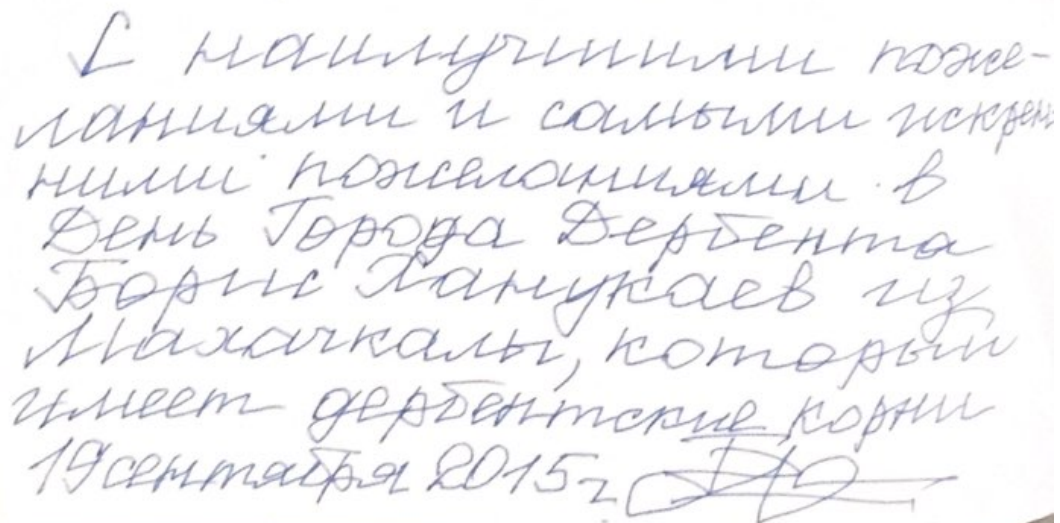 С наилучшими поже-
ланиями и самыми искрен
ними пожеланиями в
День Города Дербента
Борис Ханукаев из
Махачкалы, который
имеет дербентские корни
19 сентября 2015 г